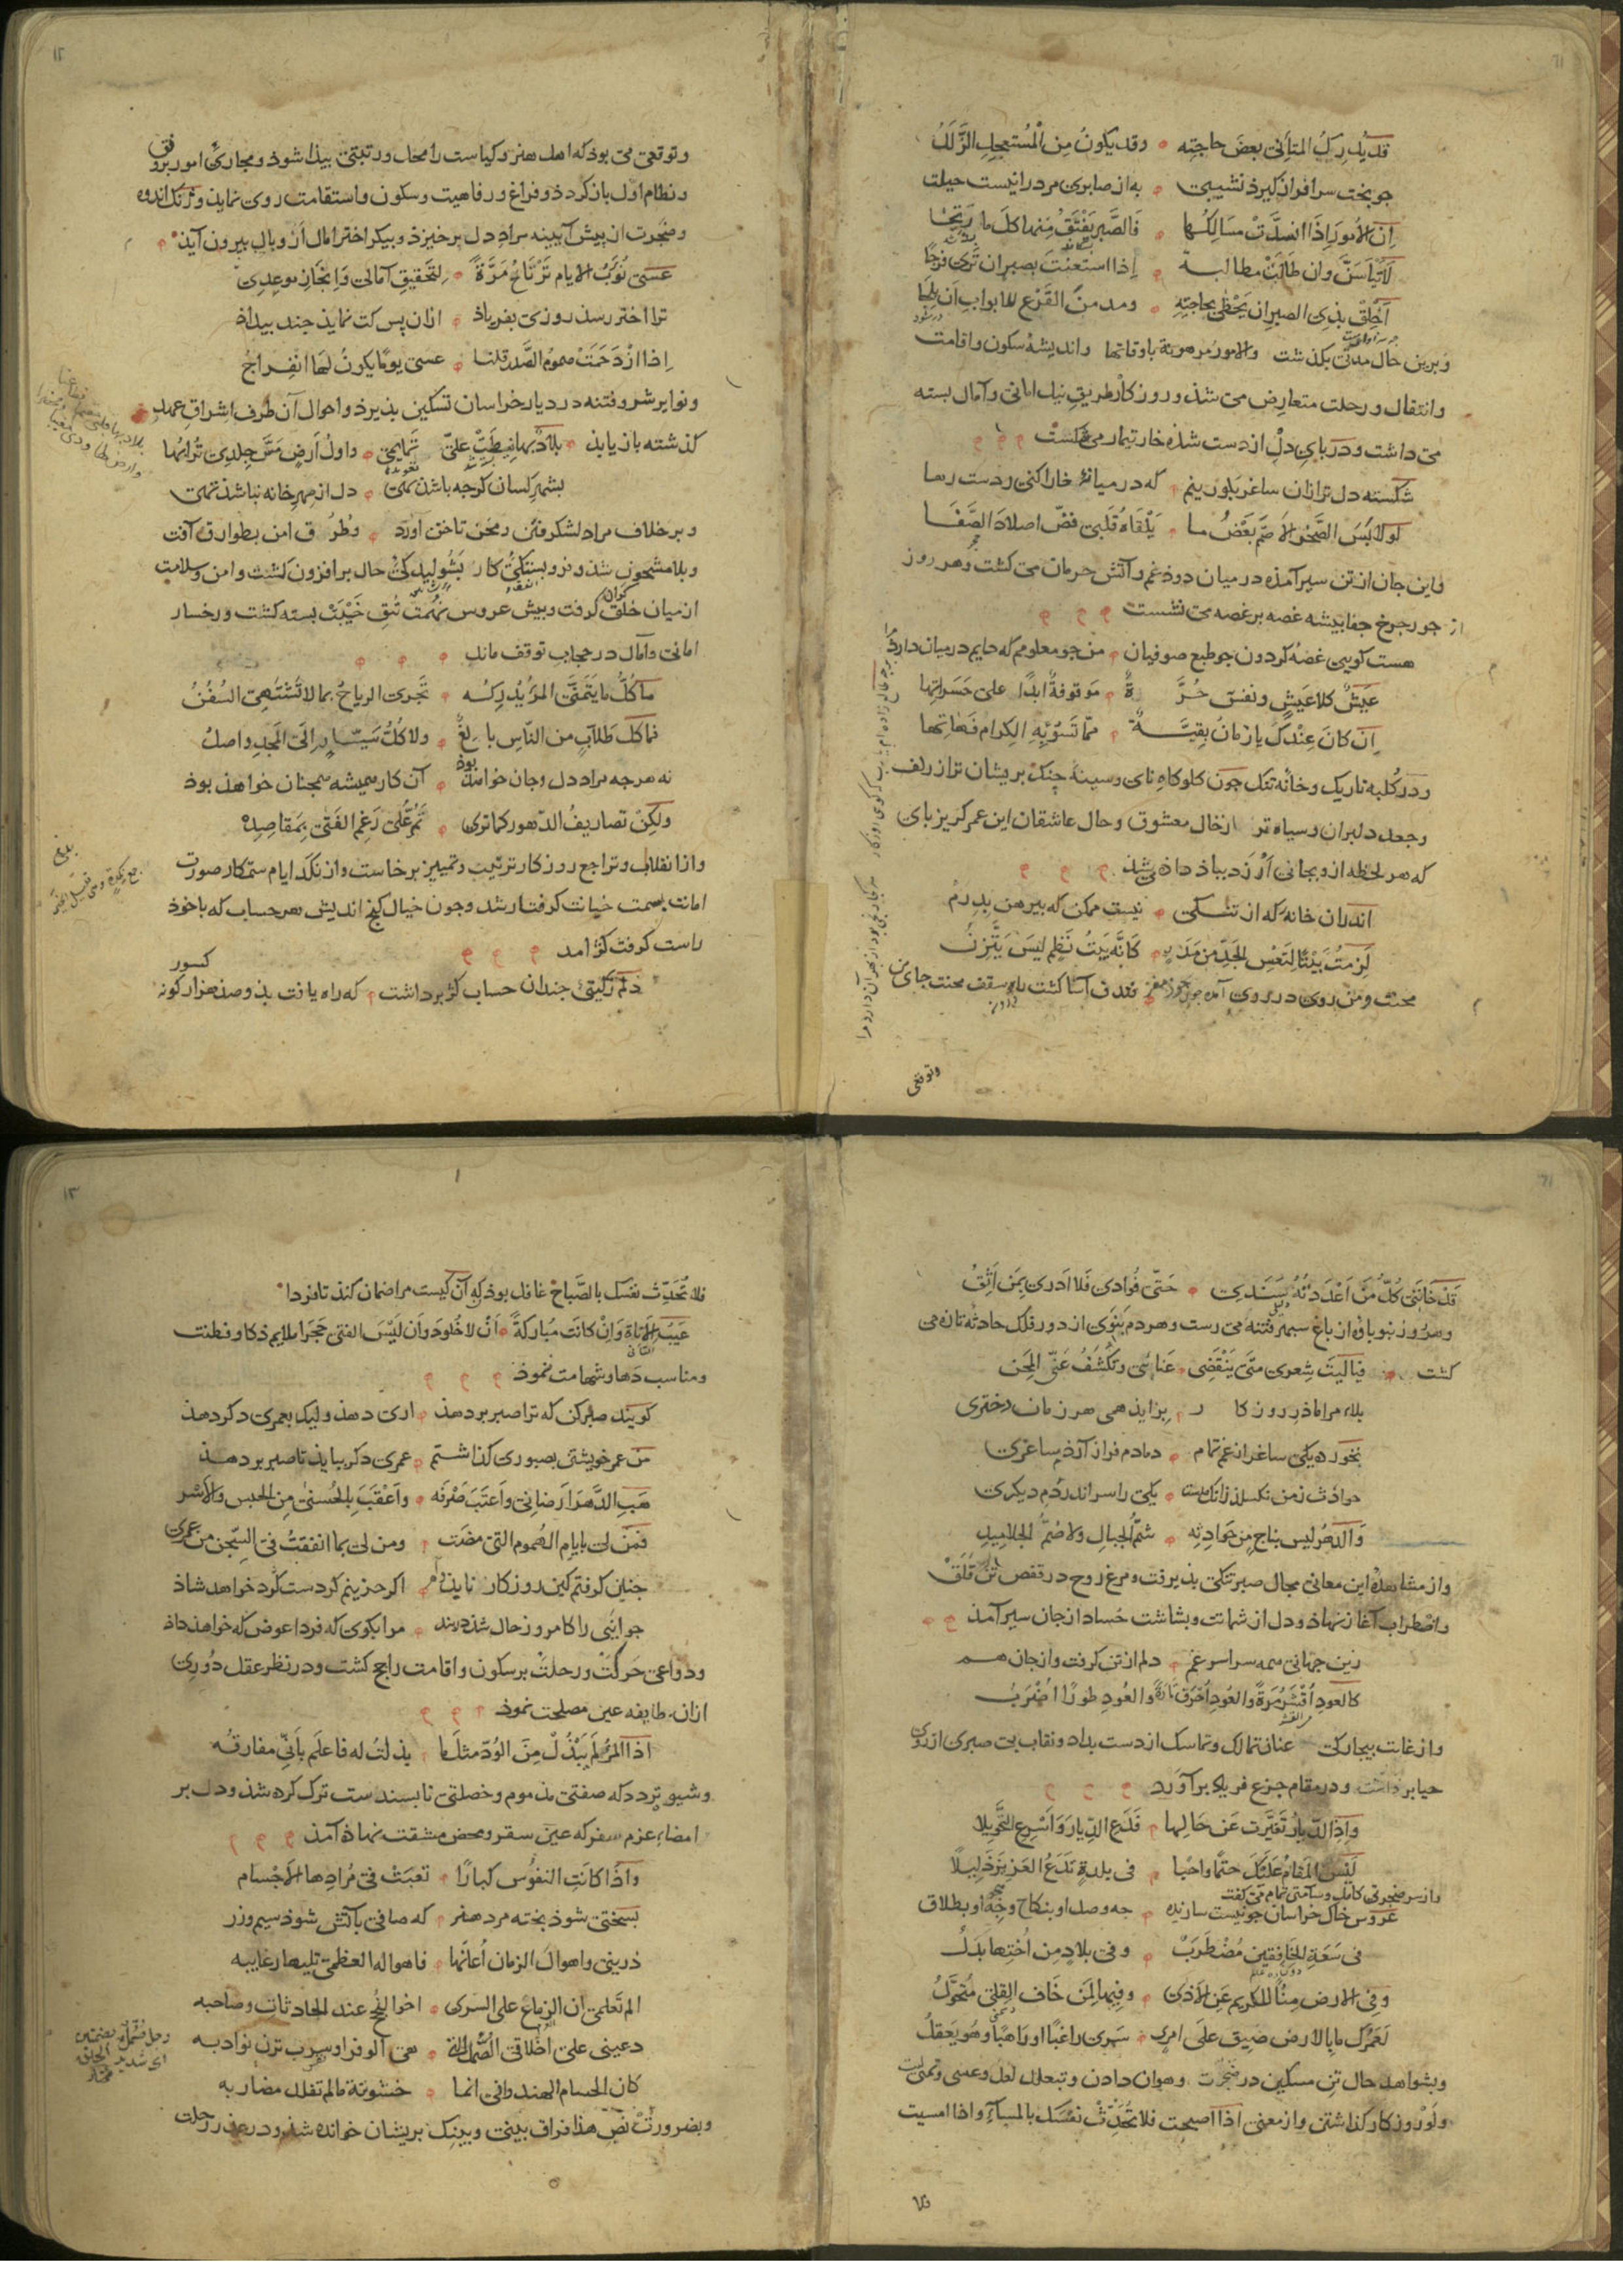 قد یدرک المتأنی بعض حاجته وقد یکون من المستعجل الزلل
جو بخت سرافراز کیرذ نشیبی به از صابری مرد را نیست حیلت
ان الامور اذا انسدت مسالکها فالصبر یفتق منها کل ما رتجا
لا تیأسن وان طالت مطالبة اذا استعنت بصبر ان تری فرجا
اخلق بذی الصبر ان یحظی بحاجته ومدمن القرع للابواب ان یلجا
وبرین حال مدتی بکذشت والامور مرهونة باوقاتها واندیشهٔ سکون واقامت
وانتقال ورحلت متعارض می شذ و روزکار طریق نیل امانی وآمال بسته
می داشت ودر بای دل از دست شذه خار تیمار می شکست
شکسته دل تر ازان ساغر بلورینم که در میانهٔ خارا کنی ز دست رها
لو لابس الصخر الاصم بعض ما یلقاه قلبی فض اصلاد الصفا
واین جان از تن سیر آمذه در میان دوذ غم وآتش حرمان می کشت وهر روز
از جور جرخ جفا بیشه غصه بر غصه می نشست
هست کویی غصهٔ کردون جو طبع صوفیان من جو معلومم که دایم در میان دارد مرا
عیش کلا عیش ونفس حرة موقوفة ابدا علی حسراتها
ان کان عندک یا زمان بقیة مما تسوء به الکرام فهاتها
ودر کلبه تاریک وخانه تنک جون کلوکاه نای وسینهٔ جنک بریشان تر از زلف
وجعد دلبران وسیاه تر از خال معشوق وحال عاشقان این عمر کریز بای
که هر لحظه ازو بجانی ارزد بباذ داذه می شذ
اندران خانه که از تنکی نیست ممکن که بیرهن بدرم
لزمت بیتا لتعس الجد من مدة کانه بیت نظم لیس یتزن
وتوقعی
وتوقعی می بوذ که اهل هنر وکیاست را محل ورتبتی بیذا شوذ ومجاری امور برونق
ونظام اول باز کردذ وفراغ ورفاهیت وسکون واستقامت روی نماید وزنک اندوه
وضجرت از بیش آیینه مراد دل برخیزد وبیکر اختر امال از وبال بیرون آید
عسی نوب الایام ترتاح مرة لتحقیق آمالی وانجاز موعدی
ترا اختر رسذ روزی بفریاذ ازان بس کت نماید جند بیداذ
اذا ازدحمت هموم الصدر قلنا عسی یوما یکون لها انفراج
ونوایر شر وفتنه در دیار خراسان تسکین بذیرذ واحوال آن طرف اشراق عهد
کذشته باز یابذ بلاد بها نیطت علی تمایمی واول ارض مس جلدی ترابها
بشهر کسان کرجه باشذ کسی دل از مهر خانه نباشذ تهی
وبر خلاف مراد لشکر فتن ومحن تاختن اورد وطرق امن بطوارق آفت
وبلا مشحون شذ وفروبستکی کار بشولیدکی حال برافزون کشت وامن وسلامت
از میان خلق کران کرفت وبیش عروس نهمت تتق خیبت بسته کشت ورخسار
امانی وآمال در حجاب توقف ماند
ما کل ما یتمنی المرء یدرکه تجری الریاح بما لا تشتهی السفن
فما کل طلاب من الناس بالغ ولا کل سیار الی المجد واصل
نه هرجه مراد دل وجان خواسته بوذ آن کار همیشه همجنان خواهذ بوذ
ولکن تصاریف الدهور کما تری تمر علی رغم الفتی بمقاصده
واز انقلاب وتراجع روزکار ترتیب وتمییز برخاست واز نکد ایام ستمکار صورت
امانت بسمت خیانت کرفتار شد وجون خیال کج اندیش هر حساب که با خوذ
راست کرفت کژ امد
دلم ز کیتی جندان حساب کژ برداشت که راه یافت بذو صذ هزار کونه کسور
قد خاننی کل من اعددته سندی حتی فؤادی فلا ادری بمن اثق
وهر روز نوباوه از باغ سبهر فتنه می رست وهر دم بنوی از دور فلک حادثه تازه می
کشت فیا لیت شعری متی ینقضی عنائی وتکشف عنی المحن
بلاء مرا ماذر روزکار بزاید همی هر زمان دختری
نخورده یکی ساغر از غم تمام دمادم فراز آرذ ساغری
حوادث ز من نکسلد زانک هست یکی را سر اندر دم دیکری
والدهر لیس بناج من حوادثه شم الجبال ولا صم الجلامید
واز مشاهدهٔ این معانی مجال صبر تنکی بذیرفت ومرغ روح در قفص تن قلق
واضطراب آغاز نهاذ ودل از شماتت وبشاشت حساد از جان سیر آمذ
زین جهانی همه سراسر غم دلم از تن کرفت واز جان هم
کالعود اقشر مرة والعود احرق تارة والعود طورا اضرب
واز غایت بیجارکی عنان تمالک وتماسک از دست بداد ونقاب بی صبری از روی
حیا برداشت ودر مقام جزع فریاد برآورد
واذا الدیار تغیرت عن حالها فدع الدیار واسرع التحویلا
لیس المقام علیک حتما واجبا فی بلدة تدع العزیز ذلیلا
واز سر ضجرتی کامل وسآمتی تمام می کفت
عروس خاک خراسان جو نیست سازنده جه وصل او بنکاح وجه او بطلاق
فی سعة الخافقین مضطرب وفی بلاد من اختها بدل
وفی الارض منأی للکریم عن الاذی وفیها لمن خاف القلی متحول
لعمرک ما بالارض ضیق علی امرئ سری راغبا او راهبا وهو یعقل
وبشواهد حال تن مسکین در ضجرت وهوان دادن وتبعلل لعل وعسی وتمنی لیت
ولو روزکار کذاشتن واز معنی اذا اصبحت فلا تحدث نفسک بالمساء واذا امسیت
فلا تحدث نفسک بالصباح غافل بوذ که آن کیست مرا ضمان کنذ تا فردا
عیب الاناة وان کانت مبارکة ان لا خلود وان لیس الفتی حجرا ملایم ذکا وفطنت
ومناسب دها وشهامت نموذ
کویند صبر کن که ترا صبر بر دهذ اری دهذ ولیک بعمری دکر دهذ
من عمر خویشتن بصبوری کذاشتم عمری دکر بباید تا صبر بر دهذ
هب الدهر ارضانی واعتب صرفه واعقب بالحسنی من الحبس والاسر
فمن لی بایام الهموم التی مضت ومن لی بما انفقت فی السجن من عمری
جنان کرفتم کین روزکار ناید اکر حزینم کردست کرد خواهد شاذ
جوانیی را کامروز حال شذ مرا بکوی که فردا عوض که خواهذ داذ
ودواعی حرکت ورحلت بر سکون واقامت راجح کشت ودر نظر عقل دوری
ازان طایفه عین مصلحت نموذ
اذا المرء لم یبذل من الود مثل ما بذلت له فاعلم بانی مفارقه
وشیوهٔ تردد که صفتی مذموم وخصلتی نابسندست ترک کرده شذ ودل بر
امضاء عزم سفر که عین سقر ومحض مشقت نهاذ آمذ
واذا کانت النفوس کبارا تعبت فی مرادها الاجسام
بسختی شوذ بخته مرد هنر که صافی بآتش شوذ سیم وزر
ذرینی واهوال الزمان اعانها فاهواله العظمی تلیها رغایبه
الم تعلمی ان الزماع علی السری اخو النجح عند الحادثات وصاحبه
دعینی علی اخلاقی الصمل التی هی الوفر او سرب ترن نوادبه
کان الحسام الهندوانی انما خشونة ما لم تفلل مضاربه
وبضرورت نص هذا فراق بینی وبینک بریشان خوانده شذ ودر عذر رحلت